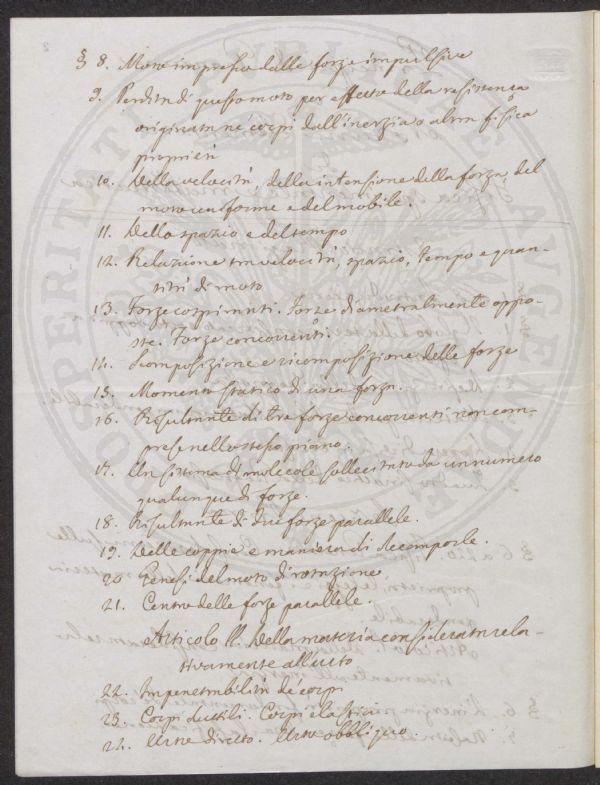 § 8. Moto impresso dalle forze impulsive
9. Perdita di questo moto per effetto della resistenza
originata ne' corpi dall'inerzia o altra fisica
proprietà
10. Della velocità, della intensione della forza, del
moto uniforme e del mobile.
11. Dello spazio e del tempo
12. Relazione tra velocità, spazio, tempo e quan-
tità di moto
13. Forze cospiranti. Forze diametralmente oppo-
ste. Forze concorrenti.
14. Scomposizione e ricomposizione delle forze
15. Momento statico di una forza.
16. Risultante di tre forze concorrenti non com-
prese nello stesso piano.
17. Un sistema di molecole sollecitato da un numero
qualunque di forze.
18. Risultante di due forze parallele.
19. Delle coppie e maniera di decomporle.
20. Genesi del moto di rotazione.
21. Centro delle forze parallele.
Articolo II. Della materia considerata rela-
tivamente all'urto
22. Impenetrabilità de' corpi
23. Corpi duttili. Corpi elastici
24. Urto diretto. Urto obbliquo.